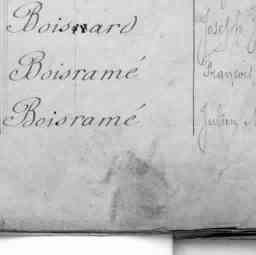 Boisnard Joseph
Boisramé François
Boisramé Julien